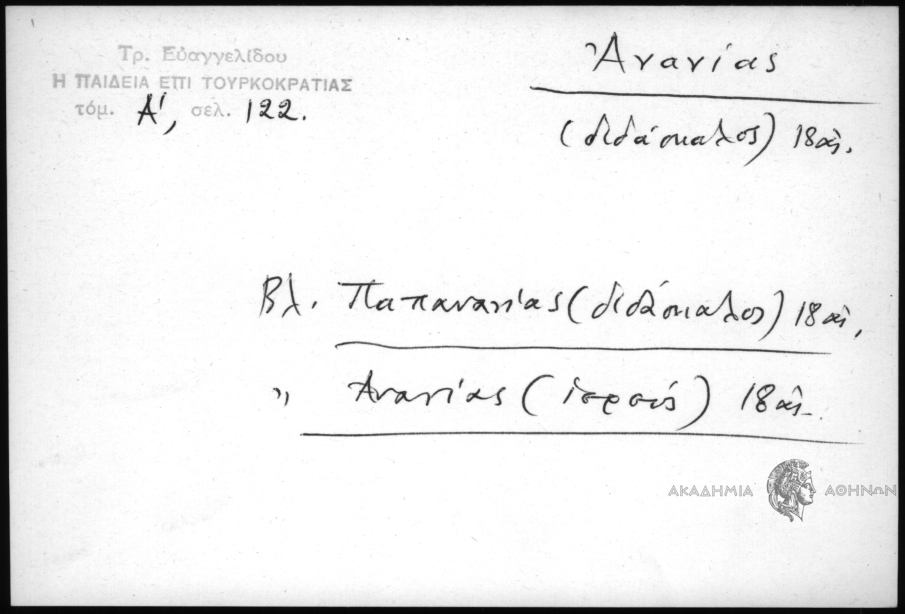 Τρ. Εὐαγγελίδου
Η ΠΑΙΔΕΙΑ ΕΠΙ ΤΟΥΡΚΟΚΡΑΤΙΑΣ
τόμ. Α', σελ. 122.
Ἀνανίας
(διδάσκαλος) 18 αἰ.
Βλ. Παπανανίας (διδάσκαλος) 18 αἰ.
" Ἀνανίας (ἱερεύς) 18 αἰ.
ΑΚΑΔΗΜΙΑ ΑΘΗΝΩΝ